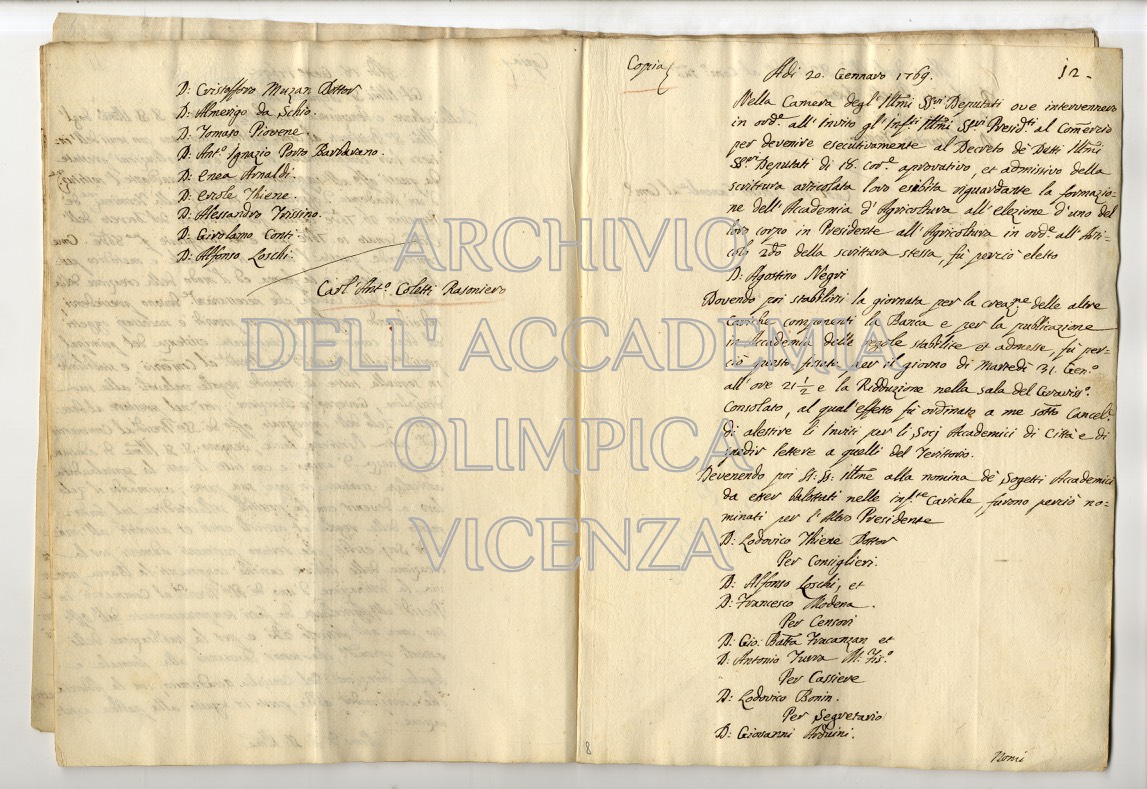 D: Cristofforo Muzan Dottor
D: Almerigo da Schio.
D: Tomaso Piovene
D: Ant.o Ignazio Porto Barbarano.
D: Enea Arnaldi.
D: Ercole Thiene.
D: Alessandro Trissino.
D: Girolamo Conti.
D: Alfonso Loschi.
Carl'Ant.o Coletti Rasoniero
8
Copia
Adi 20. Gennaro 1769.
12.
Nella Camera degl'Illmi SSri Deputati ove intervennero
in ord.e all'Invito gl'Inf.ti Illmi SSri Presid.ti al Comercio
per devenire esecutivamente al Decreto de Detti Illmi
SSri Deputati di 18. cor.e aprovativo, et admissivo della
scritura articolata loro esibita riguardante la formazio
ne dell'Accademia d'Agricoltura all'elezione d'uno del
loro corpo in Presidente all'Agricoltura in ord.e all'Arti=
colo 2do della scritura stessa fù perciò eletto
D: Agostino Negri
Dovendo poi stabilirsi la giornata per la creaz.ne delle altre
Cariche componenti la Banca e per la publicazione
in Accademia delle regole stabilite et admesse, fù per=
ciò questa fissata per il giorno di Martedì 31. Gen.o
all'ore 21 1/2 e la Ridduzione nella sala del Graviss.o
Consolato, al qual'effetto fù ordinato a me sotto Cancel.r
di alestire li Inviti per li Socj Accademici di Città e di
spedir lettere a quelli del Territorio.
Devenendo poi SS: SS: Illme alla nomina de Sogetti Accademici
da esser balottati nelle inf.te Cariche, furono perciò no=
minati per l'Altro Presidente
D: Lodovico Thiene Dottor
Per Consiglieri.
D: Alfonso Loschi, et
D: Francesco Modena.
Per Censori
D: Gio: Batta Fracanzan et
D: Antonio Turra M.o Fis.o
Per Cassiere
D: Lodovico Bonin.
Per Segretario
D: Giovanni Arduini.
Nomi
ARCHIVIO
DELL'ACCADEMIA
OLIMPICA
VICENZA